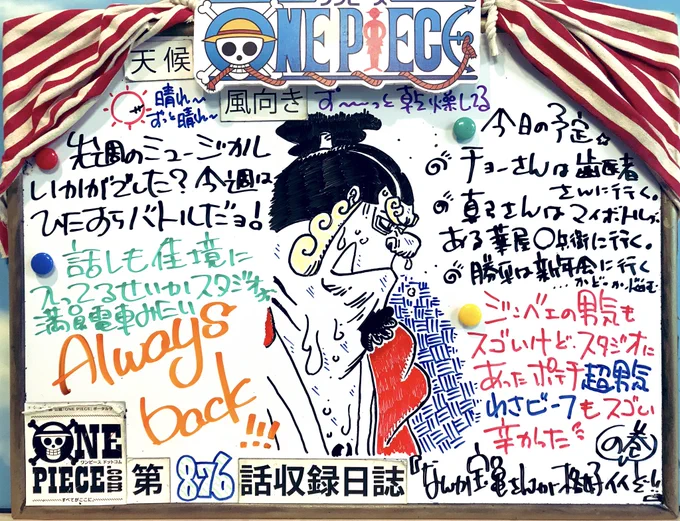 ワンピース
ONE PIECE
天候
晴れ〜
ずっと晴れ〜
風向き
ず〜〜っと乾燥してる
先週のミュージカル
いかがでした?今週は
ひたすらバトルだョ!
話しも佳境に
入ってるせいかスタジオも
満員電車みたい
Always
back!!!
今日の予定☆
◎チョーさんは歯医者
さんに行く。
◎真弓さんはマイボトルが
ある薬屋〇兵衛に行く。
◎勝平は新年会に行く
ジンベエの男気も
スゴいけど、スタジオに
あったポテチ超男気
わさビーフもスゴい
辛かった
の巻
ONE
ワンピース ドットコム
PIECE
.COM
すべてがここに
第876話収録日誌
『なんか宝亀さんが格好イイぞ!!』